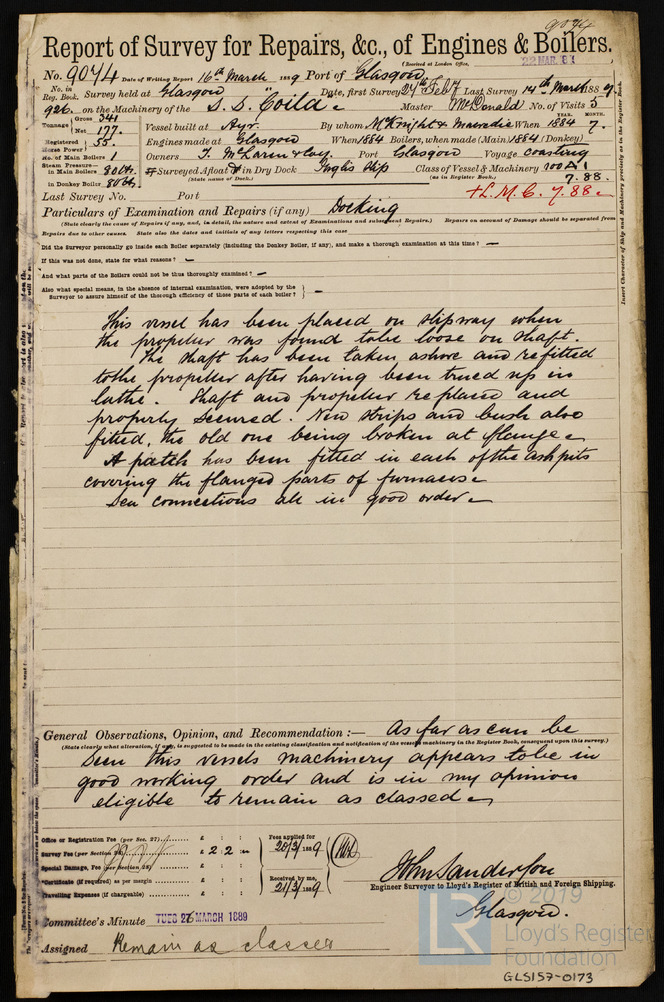 9074
Report of Survey for Repairs, &c., of Engines & Boilers.
(Received at London Office, 22 MAR. 89
No. 9074 Date of Writing Report 16th March 1889 Port of Glasgow
No. in Reg. Book. Survey held at Glasgow Date, first Survey 27th Feby Last Survey 14th March 1889
926. on the Machinery of the S.S. "Coila" Master McDonald No. of Visits 5
Tonnage Gross 341 Net 177. Vessel built at Ayr. By whom McKnight & When 1884 YEAR. MONTH. 7.
Registered Horse Power 55. Engines made at Glasgow When 1884 Boilers, when made (Main) 1884 (Donkey)
No. of Main Boilers 1 Owners T. McLaren & Coy Port Glasgow Voyage Coasting
Steam Pressure— in Main Boilers 80 lbs. Surveyed Afloat or in Dry Dock Inglis Slip Class of Vessel & Machinery 100 A 1
in Donkey Boiler 80 lbs. (State name of Dock.) (as in Register Book.) 7.88.
Last Survey No. Port +L.M.C. 7.88
Particulars of Examination and Repairs (if any) Docking
(State clearly the cause of Repairs if any, and, in detail, the nature and extent of Examinations and subsequent Repairs.) Repairs on account of Damage should be separated from
Repairs due to other causes. State also the dates and initials of any letters respecting this case
Did the Surveyor personally go inside each Boiler separately (including the Donkey Boiler, if any), and make a thorough examination at this time? —
If this was not done, state for what reasons? —
And what parts of the Boilers could not be thus thoroughly examined? —
Also what special means, in the absence of internal examination, were adopted by the
Surveyor to assure himself of the thorough efficiency of those parts of each boiler? } —
This vessel has been placed on slipway when
the propeller was found to be loose on shaft.
The shaft has been taken ashore and refitted
to the propeller after having been trued up in
lathe. Shaft and propeller replaced and
properly secured. New strips and bush also
fitted, the old one being broken at flange.
A patch has been fitted in each of the ashpits
covering the flanged parts of furnaces.
Sea connections all in good order.
General Observations, Opinion, and Recommendation :— As far as can be
(State clearly what alteration, if any, is suggested to be made in the existing classification and notification of the vessel's machinery in the Register Book, consequent upon this survey.)
seen this vessels machinery appears to be in
good working order and is in my opinion
eligible to remain as classed.
Office or Registration Fee (per Sec. 27) £ : : Fees applied for
Survey Fee (per Section 28) £ 2 : 2 : — 20/3/1889
Special Damage, Fee (per Section 28) £ : : Received by me,
*Certificate (if required) as per margin £ : : 21/3/1889
Travelling Expenses (if chargeable) £ : :
John Sanderson
Engineer Surveyor to Lloyd's Register of British and Foreign Shipping.
Glasgow.
Committee's Minute TUES 26 MARCH 1889
Assigned Remain as classed
Insert Character of Ship and Machinery precisely as in the Register Book.
© 2019
LR
Lloyd's Register
Foundation
GLS157-0173